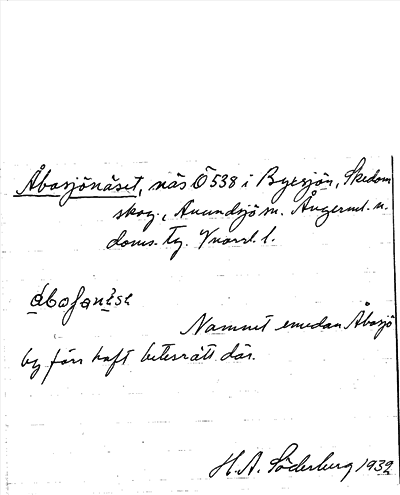 Åbosjönäset, näs Ö 538 i Byrsjön, Skedom
skog., Anundsjö sn. Ångerml. n.
doms. tg. Vnorrl. l.
Namnet emedan Åbosjö
by förr haft betesrätt där.
H. A. Söderberg 1932